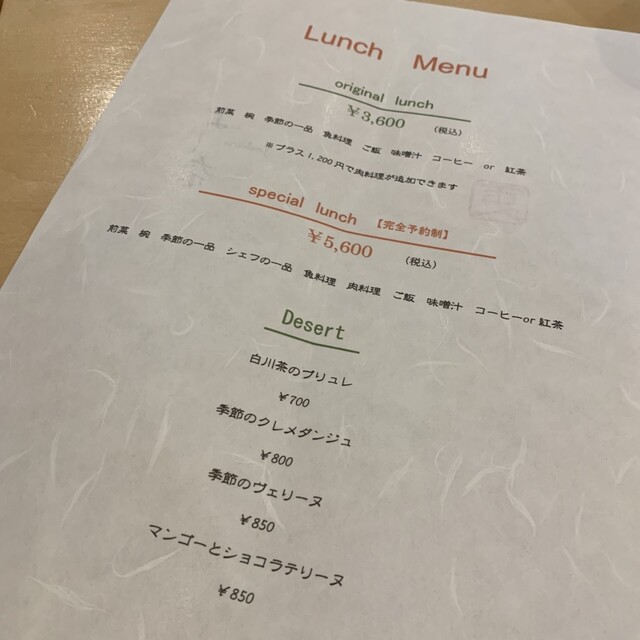 Lunch Menu
original lunch
￥3,600 (税込)
前菜 椀 季節の一品 魚料理 ご飯 味噌汁 コーヒー or 紅茶
※プラス1,200円で肉料理が追加できます
special lunch 【完全予約制】
￥5,600 (税込)
前菜 椀 季節の一品 シェフの一品 魚料理 肉料理 ご飯 味噌汁 コーヒーor紅茶
Desert
白川茶のブリュレ
￥700
季節のクレメダンジュ
￥800
季節のヴェリーヌ
￥850
マンゴーとショコラテリーヌ
￥850